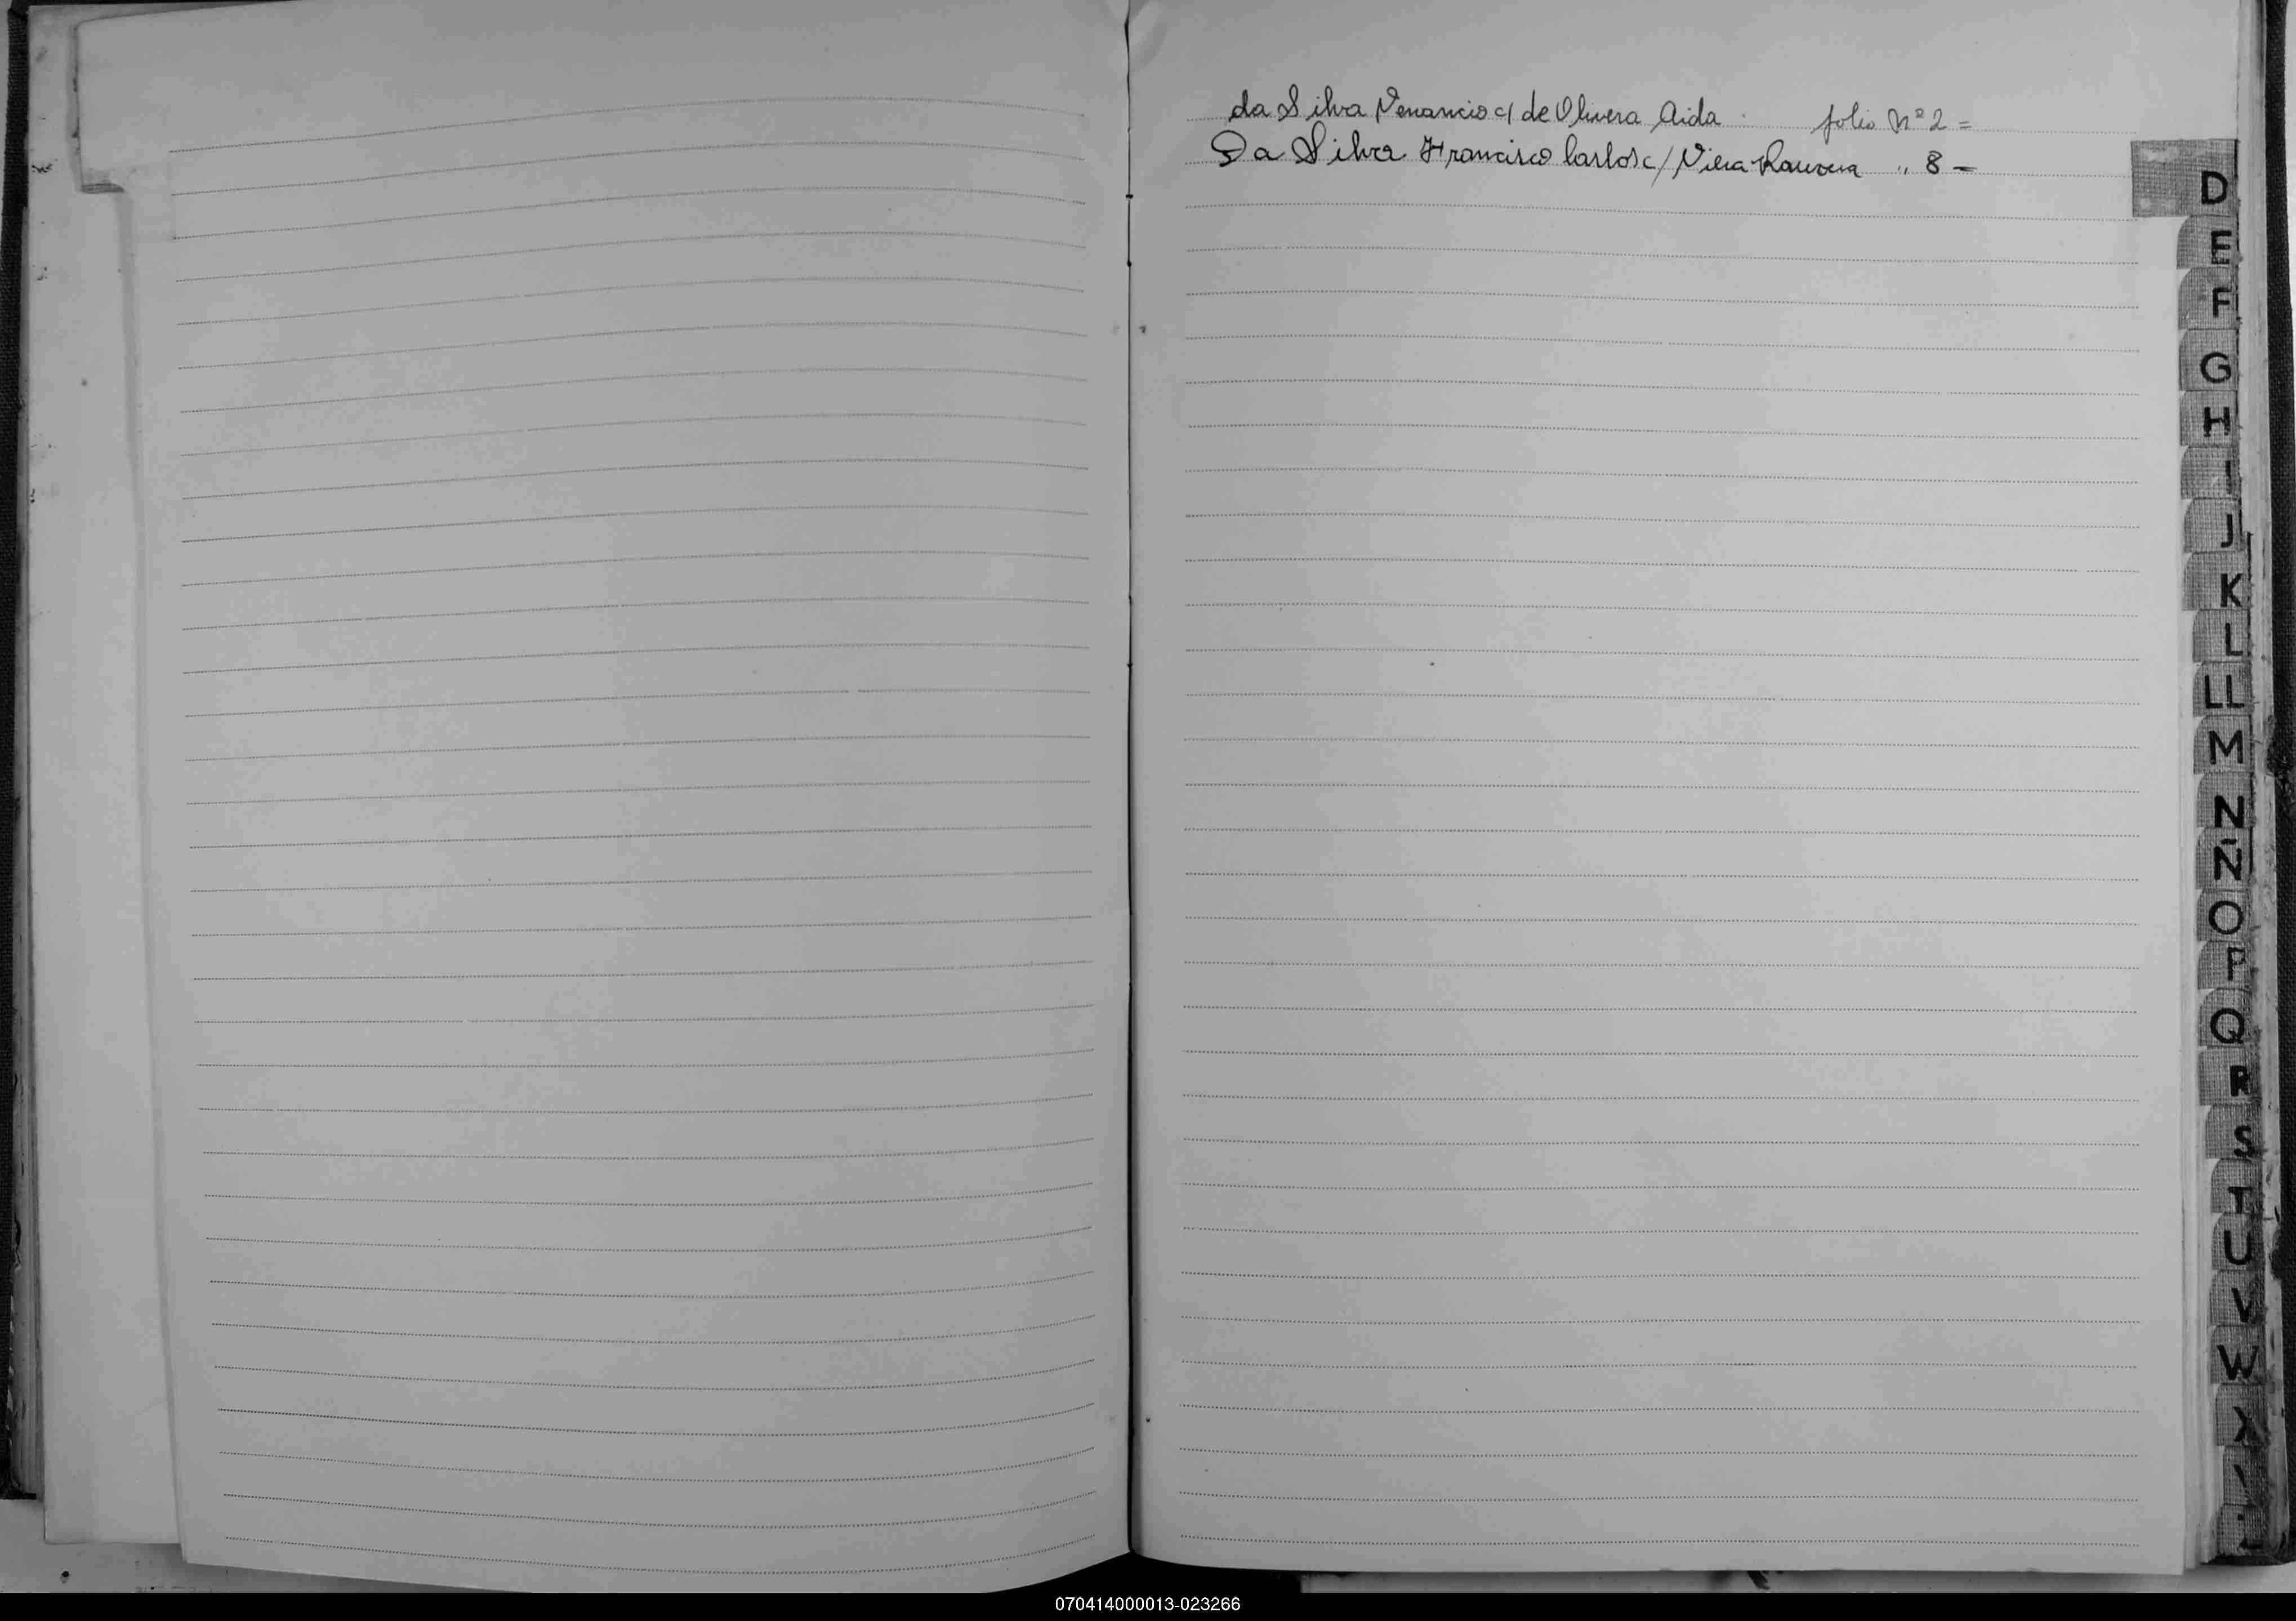 da Silva Venancio c/ de Olivera Aida folio Nº 2 =
Da Silva Francisco Carlos c/ Viera Ramona " 8 -
D
E
F
G
H
I
J
K
L
LL
M
N
Ñ
O
P
Q
R
S
T
U
V
W
X
070414000013-023266